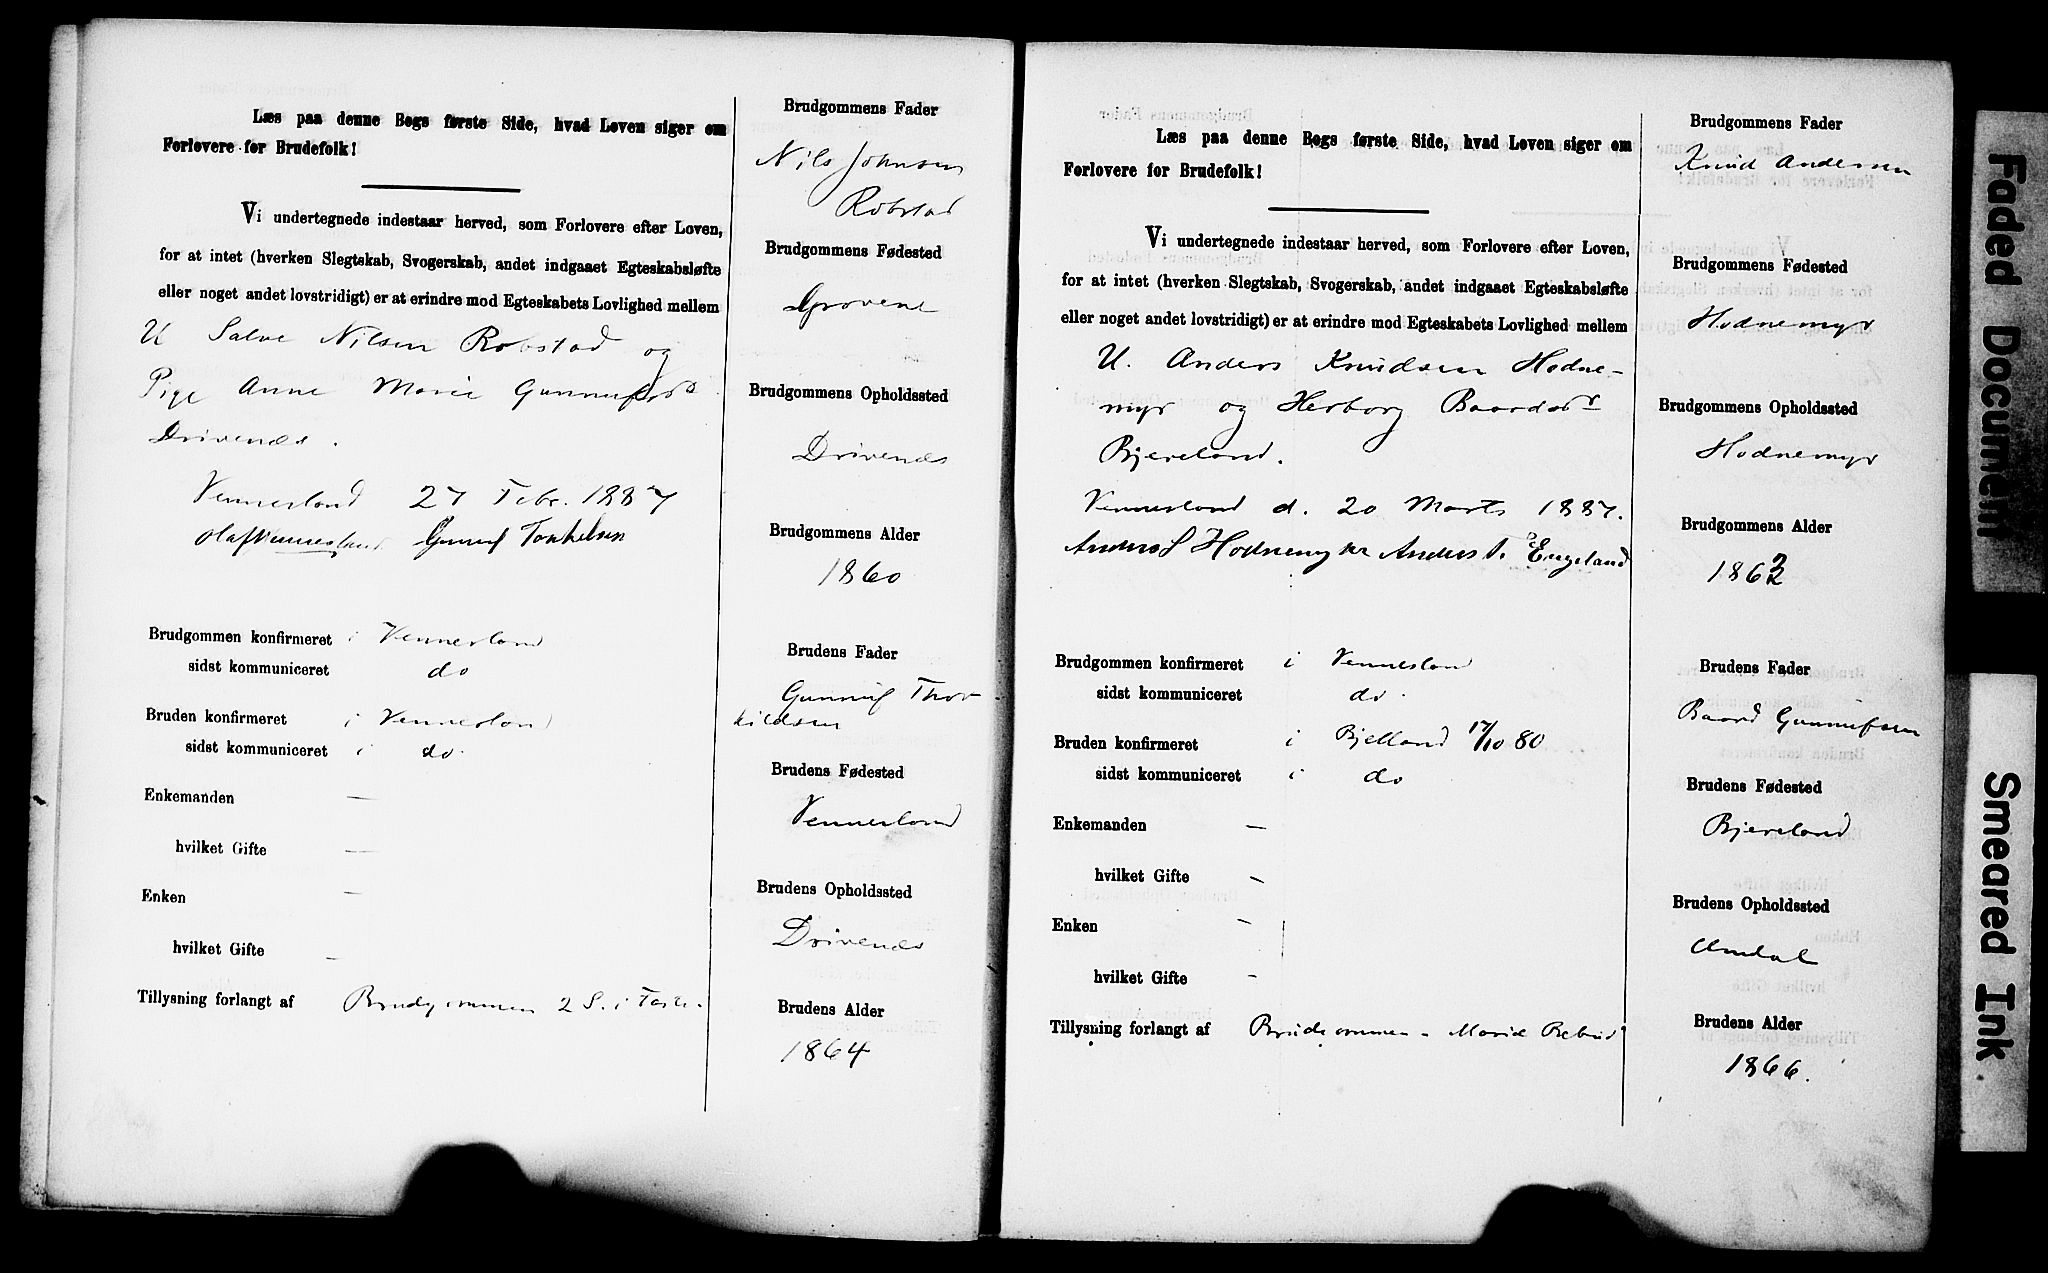 Læs paa denne Bogs første Side, hvad Loven siger om
Forlovere for Brudefolk!
Vi undertegnede indestaar herved, som Forlovere efter Loven,
for at intet (hverken Slegtskab, Svogerskab, andet indgaaet Egteskabsløfte
eller noget andet lovstridigt) er at erindre mod Egteskabets Lovlighed mellem
U Salve Nilsen Robstad og
Pige Anne Marie
Drivenes.
Vennesland 27 Febr. 1887
Gunnuf
Brudgommen konfirmeret i Vennesland
sidst kommuniceret do
Bruden konfirmeret i Vennesland
sidst kommuniceret i do.
Enkemanden —
hvilket Gifte —
Enken —
hvilket Gifte —
Tillysning forlangt af Brudgommen 2 S. i Faste.
Brudgommens Fader
Nils Johnsen
Robstad
Brudgommens Fødested
Grovene
Brudgommens Opholdssted
Drivenes
Brudgommens Alder
1860
Brudens Fader
Gunnuf Thor-
kildsen
Brudens Fødested
Vennesland
Brudens Opholdssted
Drivenes
Brudens Alder
1864
Læs paa denne Bogs første Side, hvad Loven siger om
Forlovere for Brudefolk!
Vi undertegnede indestaar herved, som Forlovere efter Loven,
for at intet (hverken Slegtskab, Svogerskab, andet indgaaet Egteskabsløfte
eller noget andet lovstridigt) er at erindre mod Egteskabets Lovlighed mellem
U. Anders Knudsen Hodne-
myr og Herborg
Bjereland.
Vennesland d. 20 Marts 1887.
Anders S Hodnemyhr Anders Engeland
Brudgommen konfirmeret i Vennesland
sidst kommuniceret do.
Bruden konfirmeret i Bjelland 17/10 80
sidst kommuniceret i do
Enkemanden —
hvilket Gifte —
Enken —
hvilket Gifte -
Tillysning forlangt af - Marie Bebud
Brudgommens Fader
Knud Andersen
Brudgommens Fødested
Hodnemyr
Brudgommens Opholdssted
Hodnemyr
Brudgommens Alder
Brudens Fader
Baard Gunnufsen
Brudens Fødested
Bjereland
Brudens Opholdssted
Brudens Alder
1866.
Faded Document
Smeared Ink